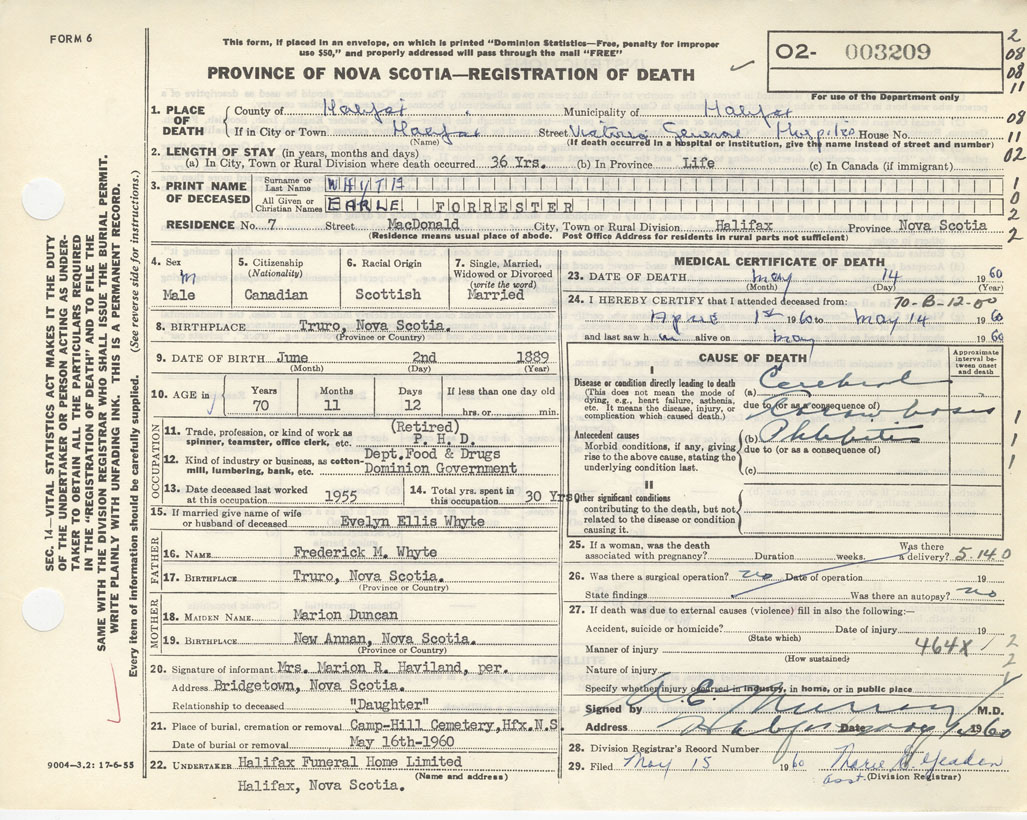 FORM 6
This form, if placed in an envelope, on which is printed "Dominion Statistics—Free, penalty for improper
use $50," and properly addressed will pass through the mail "FREE"
PROVINCE OF NOVA SCOTIA—REGISTRATION OF DEATH
O2- 003209
For use of the Department only
2
08
08
11
08
11
02
1
0
2
2
1. PLACE OF DEATH
County of Halifax Municipality of Halifax
If in City or Town Halifax Street Victoria General Hospital House No.
(Name) (If death occurred in a hospital or institution, give the name instead of street and number)
2. LENGTH OF STAY (in years, months and days)
(a) In City, Town or Rural Division where death occurred 36 Yrs. (b) In Province Life (c) In Canada (if immigrant)
3. PRINT NAME OF DECEASED
Surname or Last Name WHYTE
All Given or Christian Names EARLE FORRESTER
RESIDENCE No. 7 Street MacDonald City, Town or Rural Division Halifax Province Nova Scotia
(Residence means usual place of abode. Post Office Address for residents in rural parts not sufficient)
4. Sex
M
Male
5. Citizenship
(Nationality)
Canadian
6. Racial Origin
Scottish
7. Single, Married,
Widowed or Divorced
(write the word)
Married
8. BIRTHPLACE Truro, Nova Scotia.
(Province or Country)
9. DATE OF BIRTH June 2nd 1889
(Month) (Day) (Year)
10. AGE in
Years Months Days If less than one day old
70 11 12 hrs. or min.
OCCUPATION
11. Trade, profession, or kind of work as
spinner, teamster, office clerk, etc. (Retired)
P. H. D.
12. Kind of industry or business, as cotton-
mill, lumbering, bank, etc. Dept.Food & Drugs
Dominion Government
13. Date deceased last worked
at this occupation 1955
14. Total yrs. spent in
this occupation 30 Yrs
15. If married give name of wife
or husband of deceased Evelyn Ellis Whyte
FATHER
16. NAME Frederick M. Whyte
17. BIRTHPLACE Truro, Nova Scotia.
(Province or Country)
MOTHER
18. MAIDEN NAME Marion Duncan
19. BIRTHPLACE New Annan, Nova Scotia.
(Province or Country)
20. Signature of informant Mrs. Marion R. Haviland, per.
Address Bridgetown, Nova Scotia.
Relationship to deceased "Daughter"
21. Place of burial, cremation or removal Camp-Hill Cemetery,Hfx.N.S.
Date of burial or removal May 16th-1960
22. UNDERTAKER Halifax Funeral Home Limited
(Name and address)
Halifax, Nova Scotia.
MEDICAL CERTIFICATE OF DEATH
23. DATE OF DEATH May 14 1960
(Month) (Day) (Year)
24. I HEREBY CERTIFY that I attended deceased from: 70-B-12-00
April 1st 1960 to May 14 1960
and last saw h im alive on May 1960
CAUSE OF DEATH
Approximate
interval between
onset and
death
I
Disease or condition directly leading to death
(This does not mean the mode of
dying, e.g., heart failure, asthenia,
etc. It means the disease, injury, or
complication which caused death.)
(a) Cerebral
due to (or as a consequence of)
Thrombosis
Antecedent causes
Morbid conditions, if any, giving
rise to the above cause, stating the
underlying condition last.
(b) Phlebitis
due to (or as a consequence of)
(c)
1
1
1
II
Other significant conditions
contributing to the death, but not
related to the disease or condition
causing it.
25. If a woman, was the death
associated with pregnancy? Duration weeks. Was there
a delivery? 5.14 0
26. Was there a surgical operation? no Date of operation 19
State findings Was there an autopsy? no
27. If death was due to external causes (violence) fill in also the following:—
Accident, suicide or homicide? Date of injury 19
(State which)
Manner of injury 464X
(How sustained)
Nature of injury
Specify whether injury occurred in industry, in home, or in public place
Signed by Murray M.D.
Address Halifax Date 1960
28. Division Registrar's Record Number
29. Filed May 15 1960
Asst. (Division Registrar)
SEC. 14—VITAL STATISTICS ACT MAKES IT THE DUTY
OF THE UNDERTAKER OR PERSON ACTING AS UNDER-
TAKER TO OBTAIN ALL THE PARTICULARS REQUIRED
IN THE "REGISTRATION OF DEATH" AND TO FILE THE
SAME WITH THE DIVISION REGISTRAR WHO SHALL ISSUE THE BURIAL PERMIT.
WRITE PLAINLY WITH UNFADING INK. THIS IS A PERMANENT RECORD.
Every item of information should be carefully supplied. (See reverse side for instructions.)
9004—3.2: 17-6-55